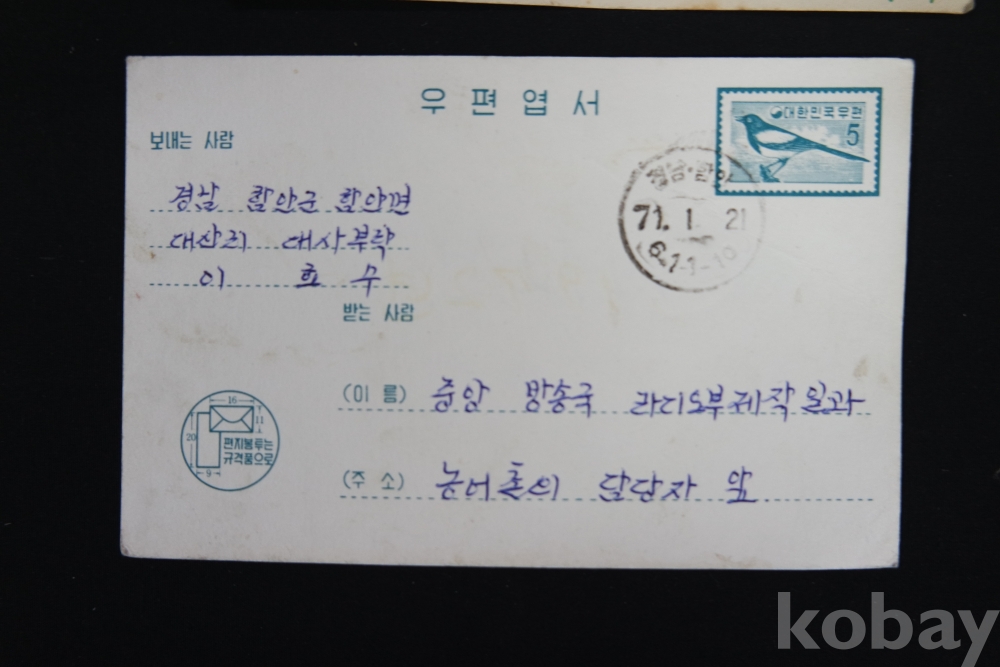 우편엽서
대한민국우편
5
보내는 사람
경남 함안군 함안면
대산리 대사부락
이 효 수
경남·함안
71. 1. 21
받는 사람
(이 름) 중앙 방송국 라디오부제작일과
(주 소) 농어촌의 담당자 앞
16
11
20
9
편지봉투는
규격품으로
kobay